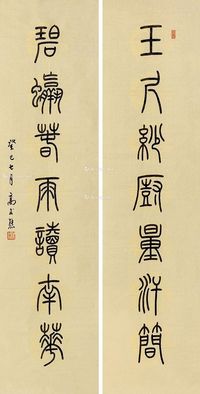 玉尺紗廚量汗簡
碧螺春雨讀南華
癸巳七月 高式熊